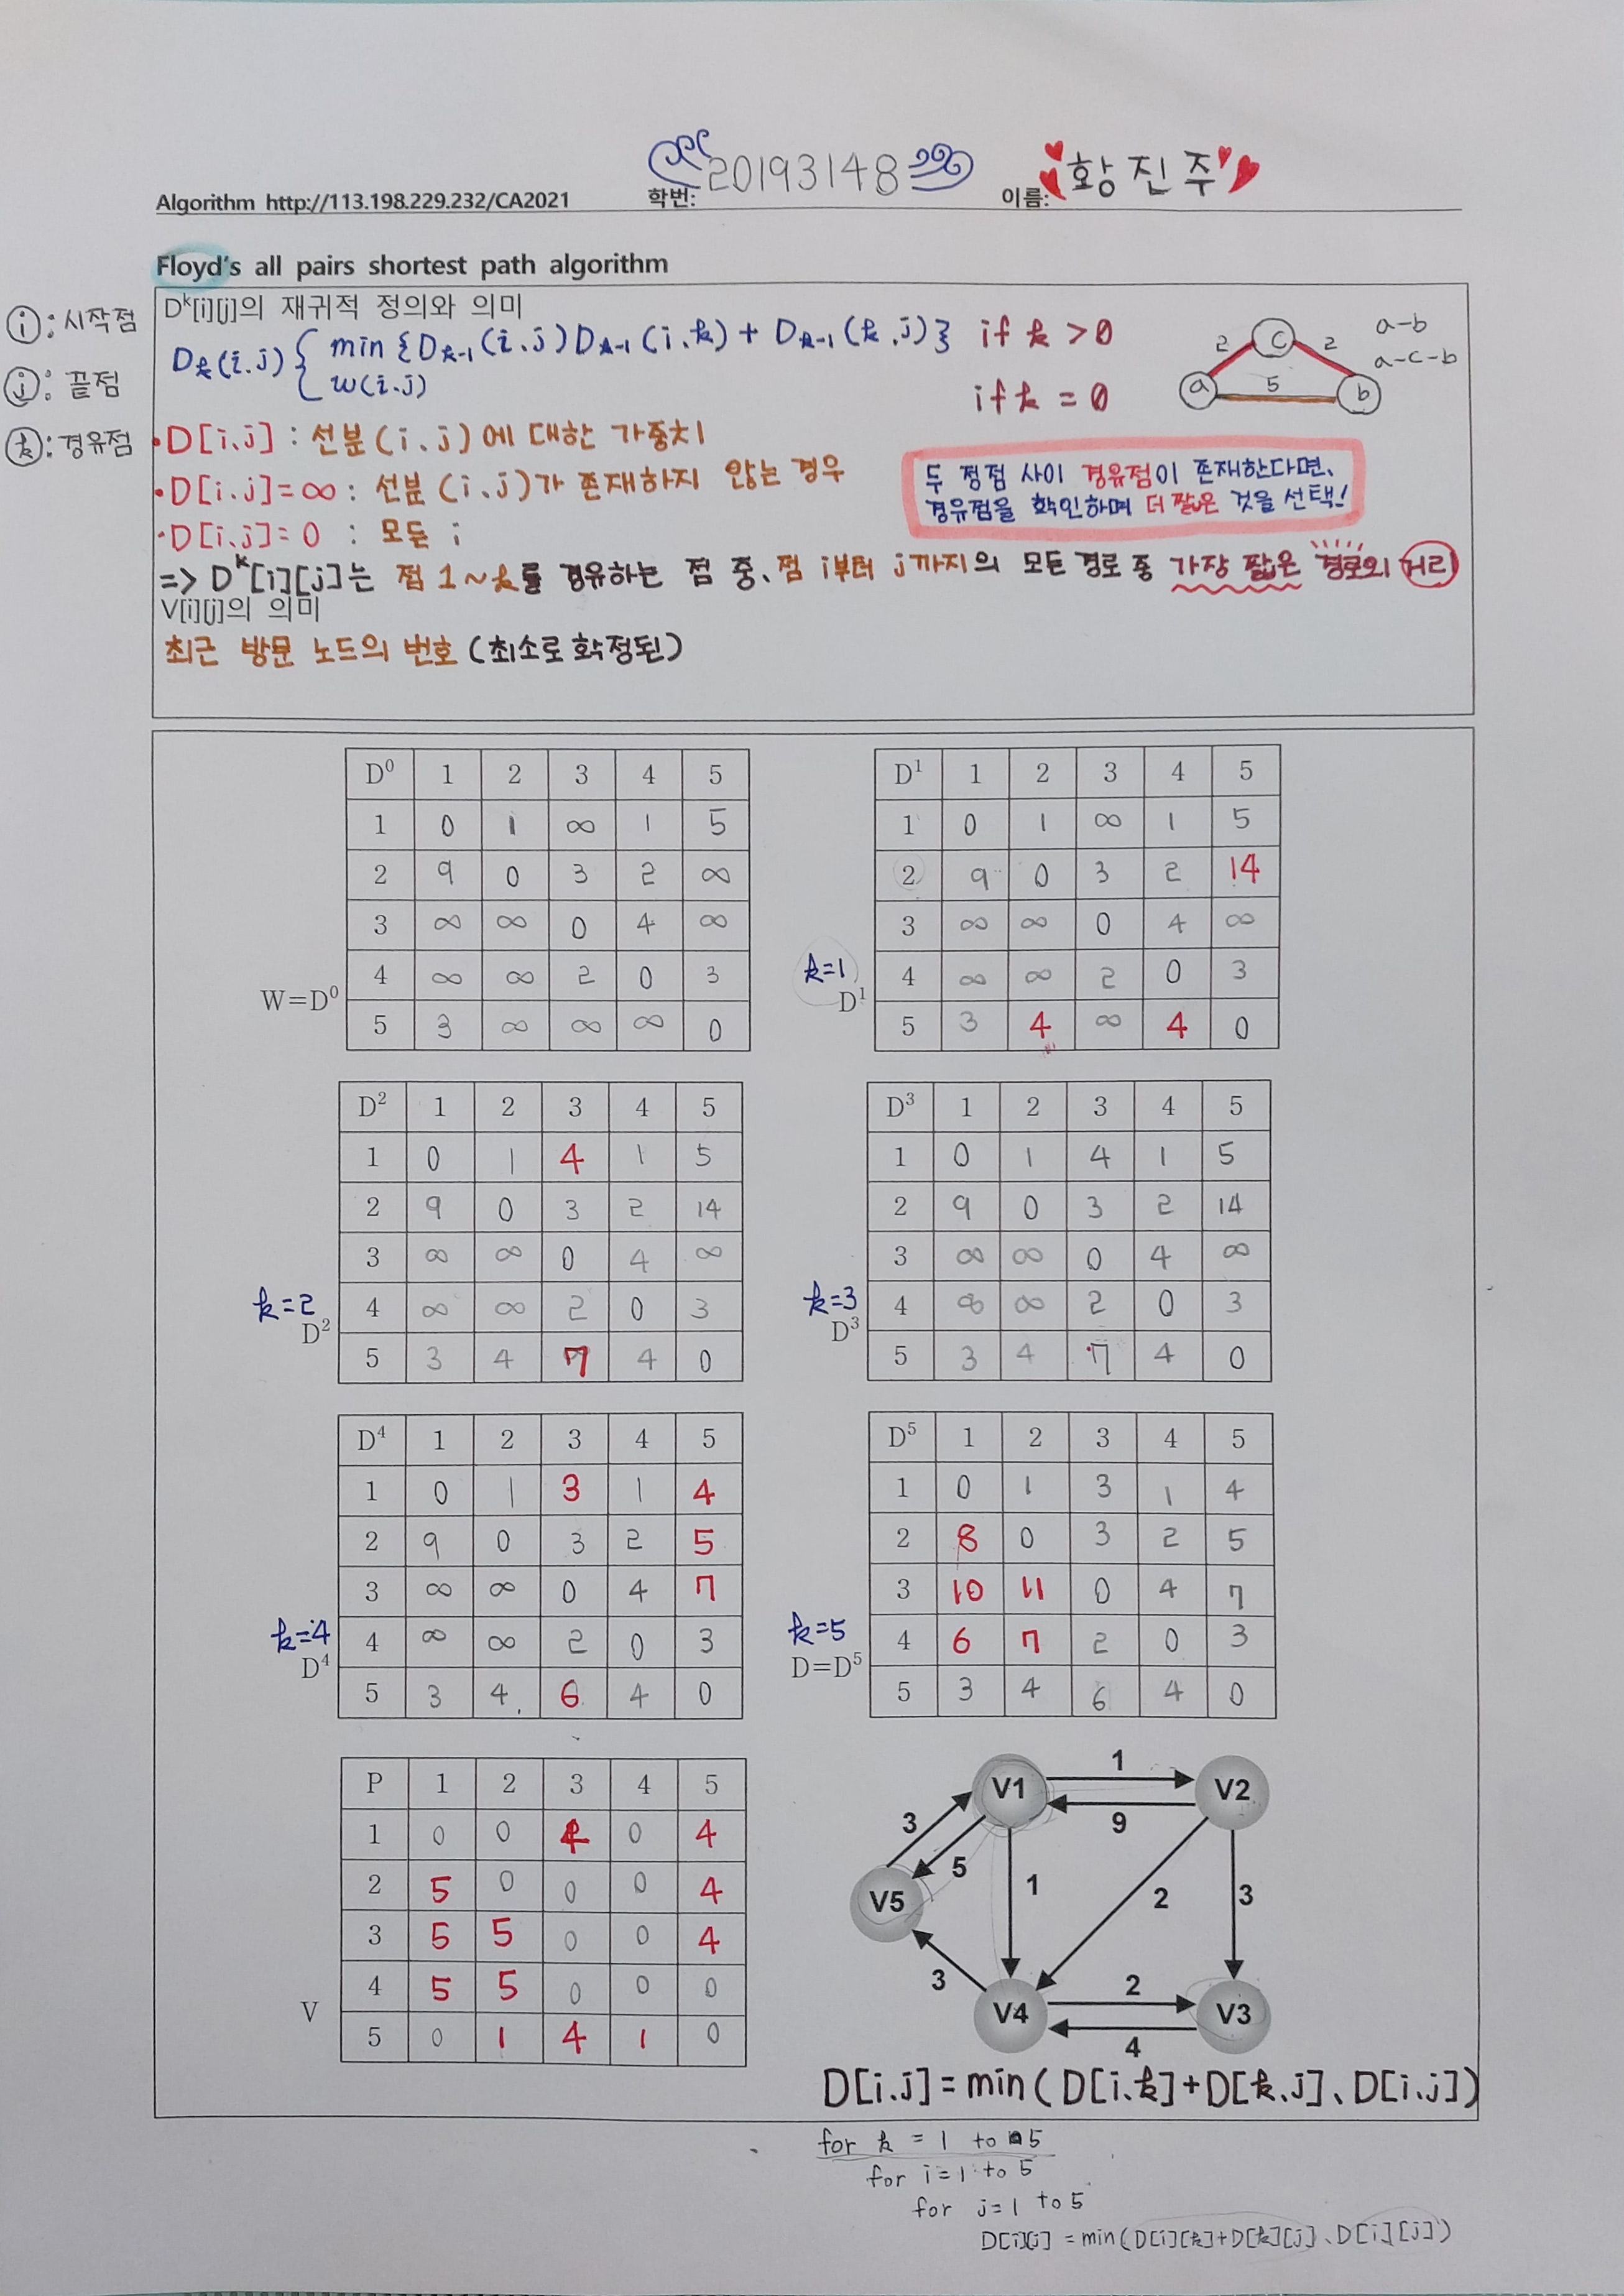 학번: 20193148
이름: 황진주
Algorithm http://113.198.229.232/CA2021
Floyd's all pairs shortest path algorithm
ⓘ: 시작점
ⓙ: 끝점
ⓚ: 경유점
Dᵏ[i][j]의 재귀적 정의와 의미
Dₖ(i,j) { min {Dₖ₋₁(i,j) Dₖ₋₁(i,k) + Dₖ₋₁(k,j)} if k > 0
w(i,j) if k = 0
c
2 2
a 5 b
a-b
a-c-b
•D[i,j] : 선분(i,j)에 대한 가중치
•D[i,j]=∞ : 선분(i,j)가 존재하지 않는 경우
•D[i,j]=0 : 모든 i
두 정점 사이 경유점이 존재한다면,
경유점을 확인하며 더 짧은 것을 선택!
=> Dᵏ[i][j]는 점 1~k를 경유하는 점 중, 점 i부터 j까지의 모든 경로 중 가장 짧은 경로의 거리
V[i][j]의 의미
최근 방문 노드의 번호 (최소로 확정된)
W=D⁰
D⁰ 1 2 3 4 5
1 0 1 ∞ 1 5
2 9 0 3 2 ∞
3 ∞ ∞ 0 4 ∞
4 ∞ ∞ 2 0 3
5 3 ∞ ∞ ∞ 0
k=1
D¹
D¹ 1 2 3 4 5
1 0 1 ∞ 1 5
2 9 0 3 2 14
3 ∞ ∞ 0 4 ∞
4 ∞ ∞ 2 0 3
5 3 4 ∞ 4 0
k=2
D²
D² 1 2 3 4 5
1 0 1 4 1 5
2 9 0 3 2 14
3 ∞ ∞ 0 4 ∞
4 ∞ ∞ 2 0 3
5 3 4 7 4 0
k=3
D³
D³ 1 2 3 4 5
1 0 1 4 1 5
2 9 0 3 2 14
3 ∞ ∞ 0 4 ∞
4 ∞ ∞ 2 0 3
5 3 4 7 4 0
k=4
D⁴
D⁴ 1 2 3 4 5
1 0 1 3 1 4
2 9 0 3 2 5
3 ∞ ∞ 0 4 7
4 ∞ ∞ 2 0 3
5 3 4 6 4 0
k=5
D=D⁵
D⁵ 1 2 3 4 5
1 0 1 3 1 4
2 8 0 3 2 5
3 10 11 0 4 7
4 6 7 2 0 3
5 3 4 6 4 0
V
P 1 2 3 4 5
1 0 0 4 0 4
2 5 0 0 0 4
3 5 5 0 0 4
4 5 5 0 0 0
5 0 1 4 1 0
V1 1 V2
3 9
5
V5 1 2 3
3 2
V4 V3
4
D[i,j]=min(D[i,k]+D[k,j], D[i,j])
for k = 1 to 5
for i=1 to 5
for j=1 to 5
D[i][j] = min(D[i][k]+D[k][j], D[i][j])